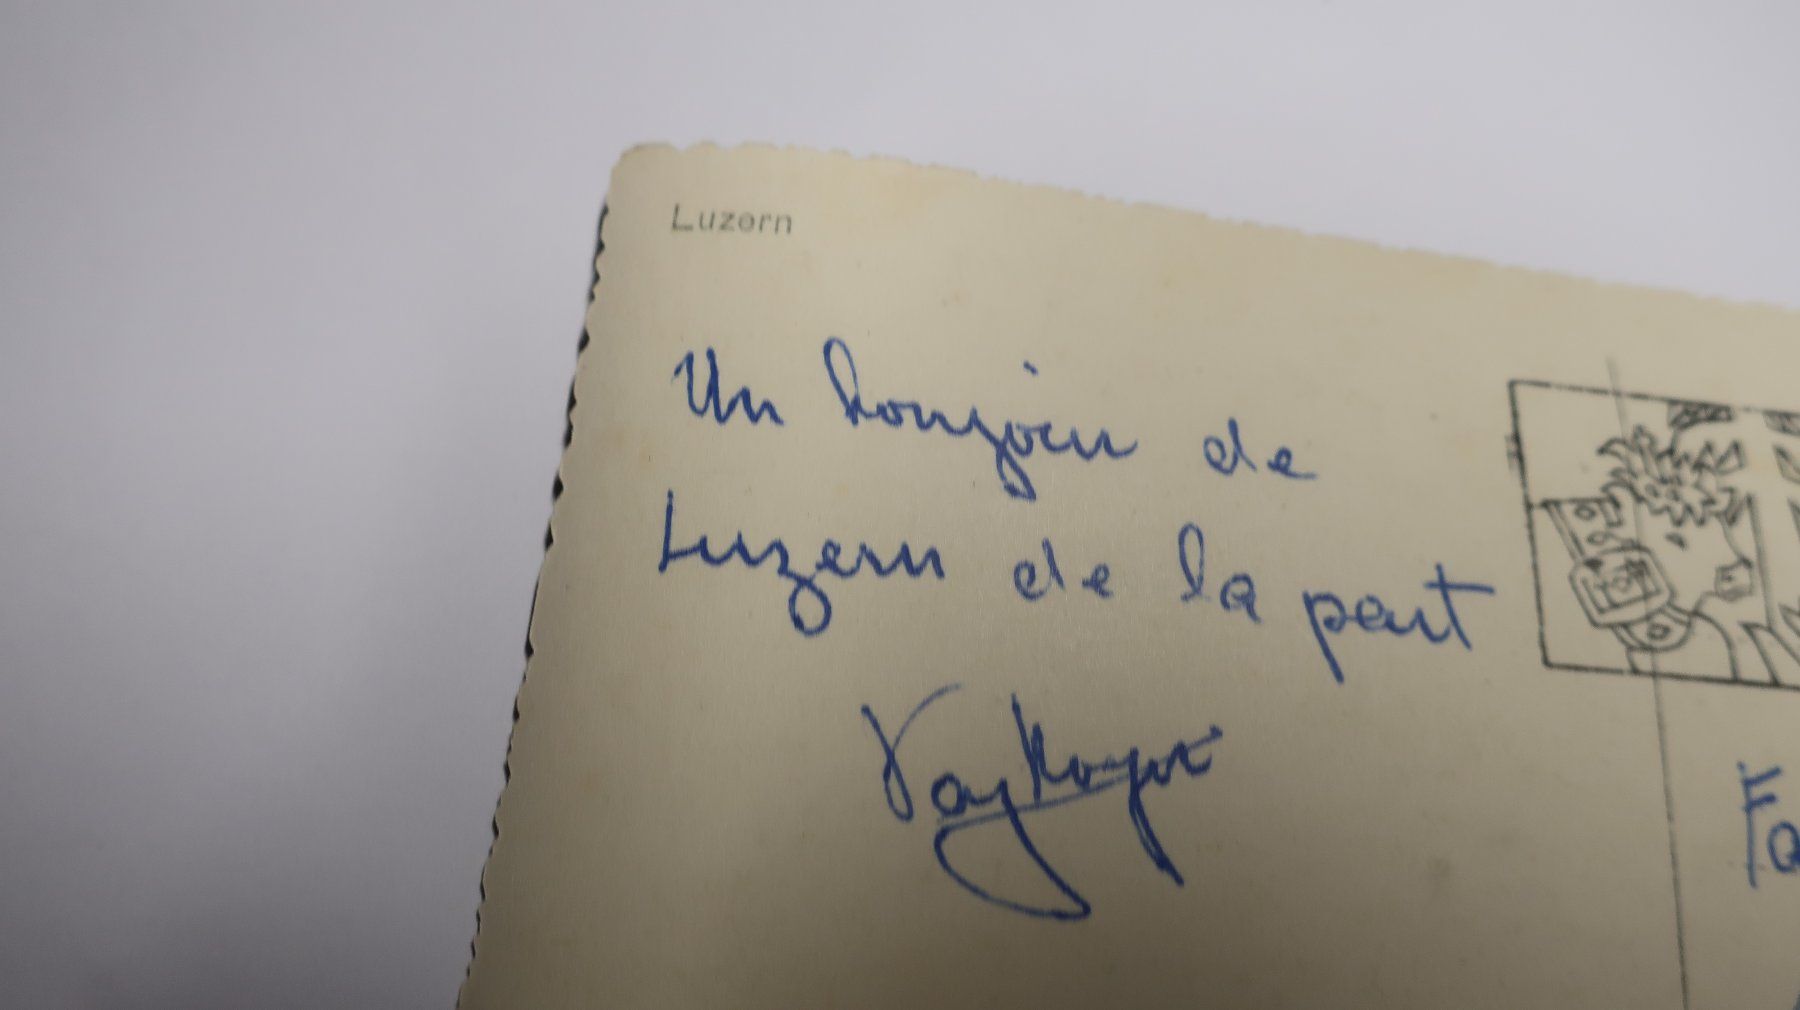 Luzern
Un bonjour de
Luzern de la part
Fa